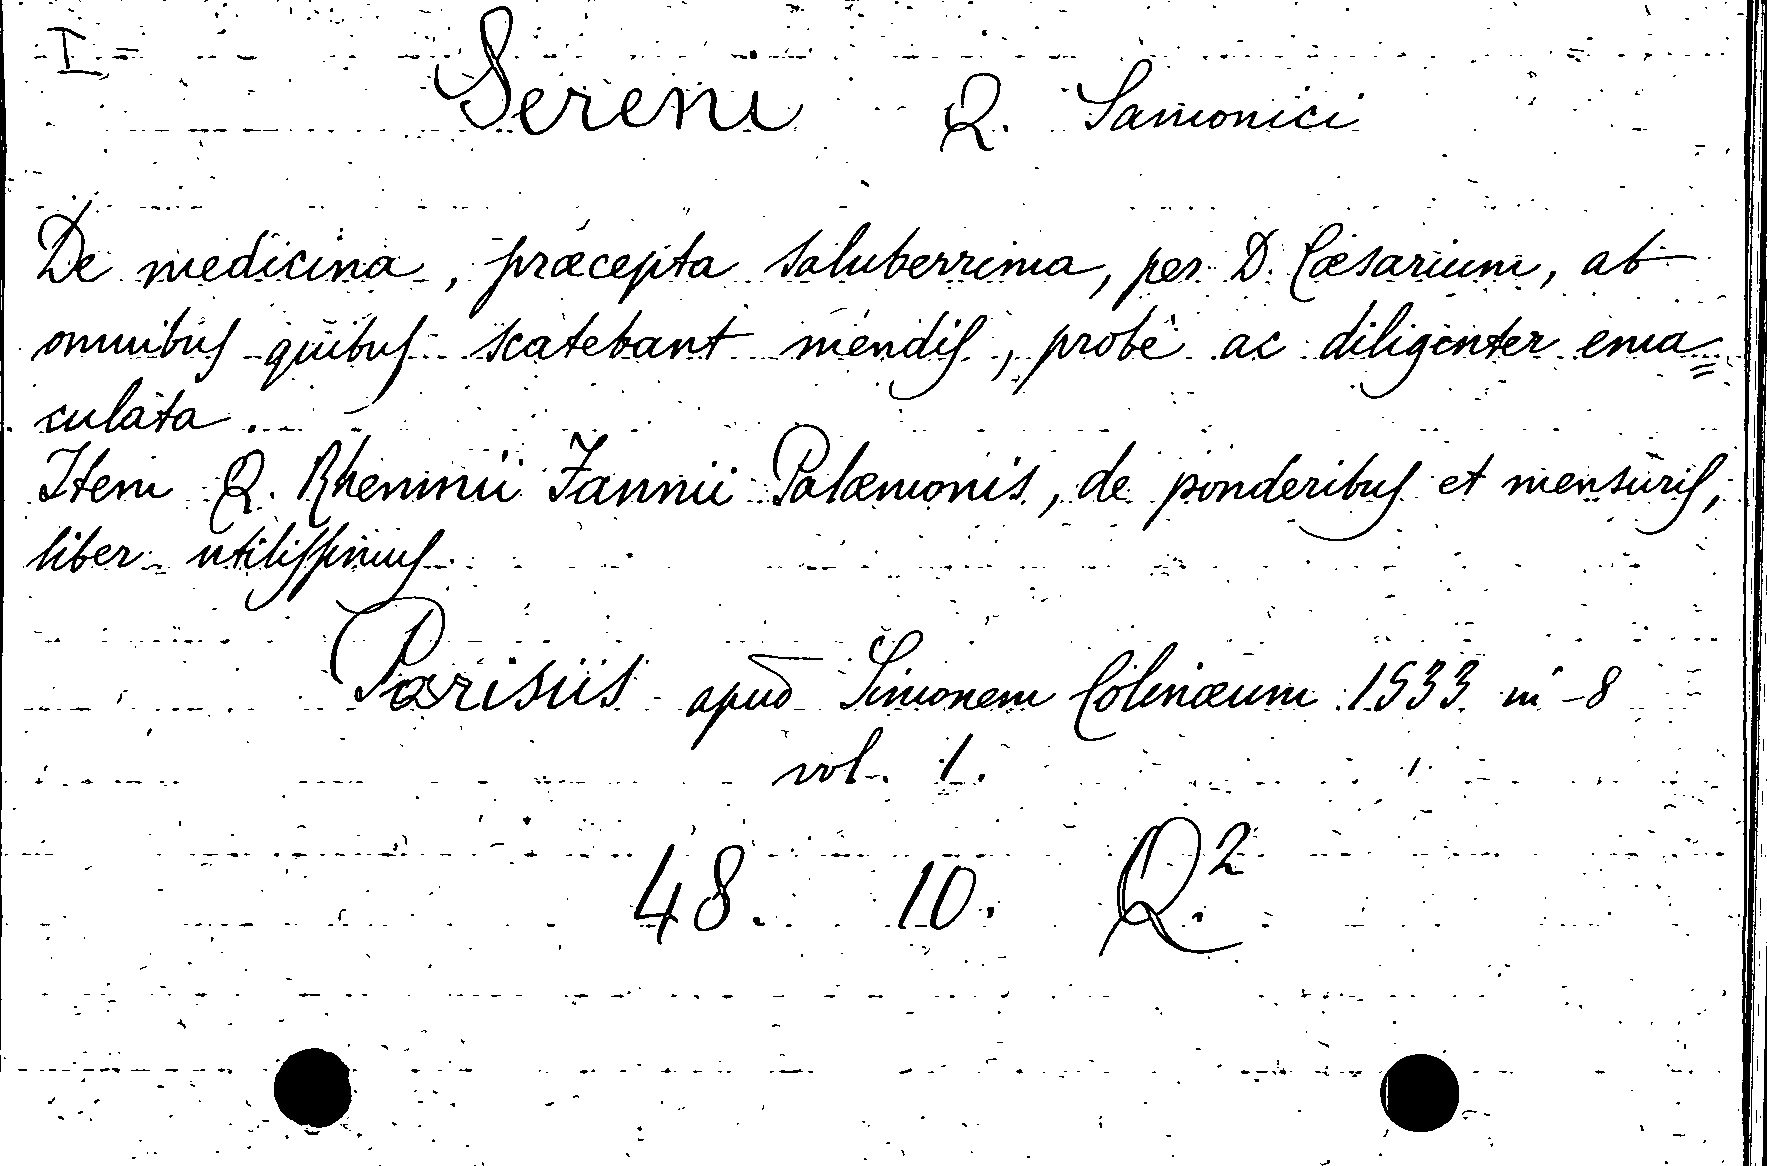 I
Sereni Q. Samonici
De medicina, præcepta saluberrima, per D. Cæsarium, ab
omnibus quibus scatebant mendis, probè ac diligenter ema=
culata.
Item Q. Rhemnii Fannii Palæmonis, de ponderibus et mensuris,
liber utilissimus
Parisiis apud Simonem Colinæum 1533 in-8
vol. 1.
48. 10. Q.²